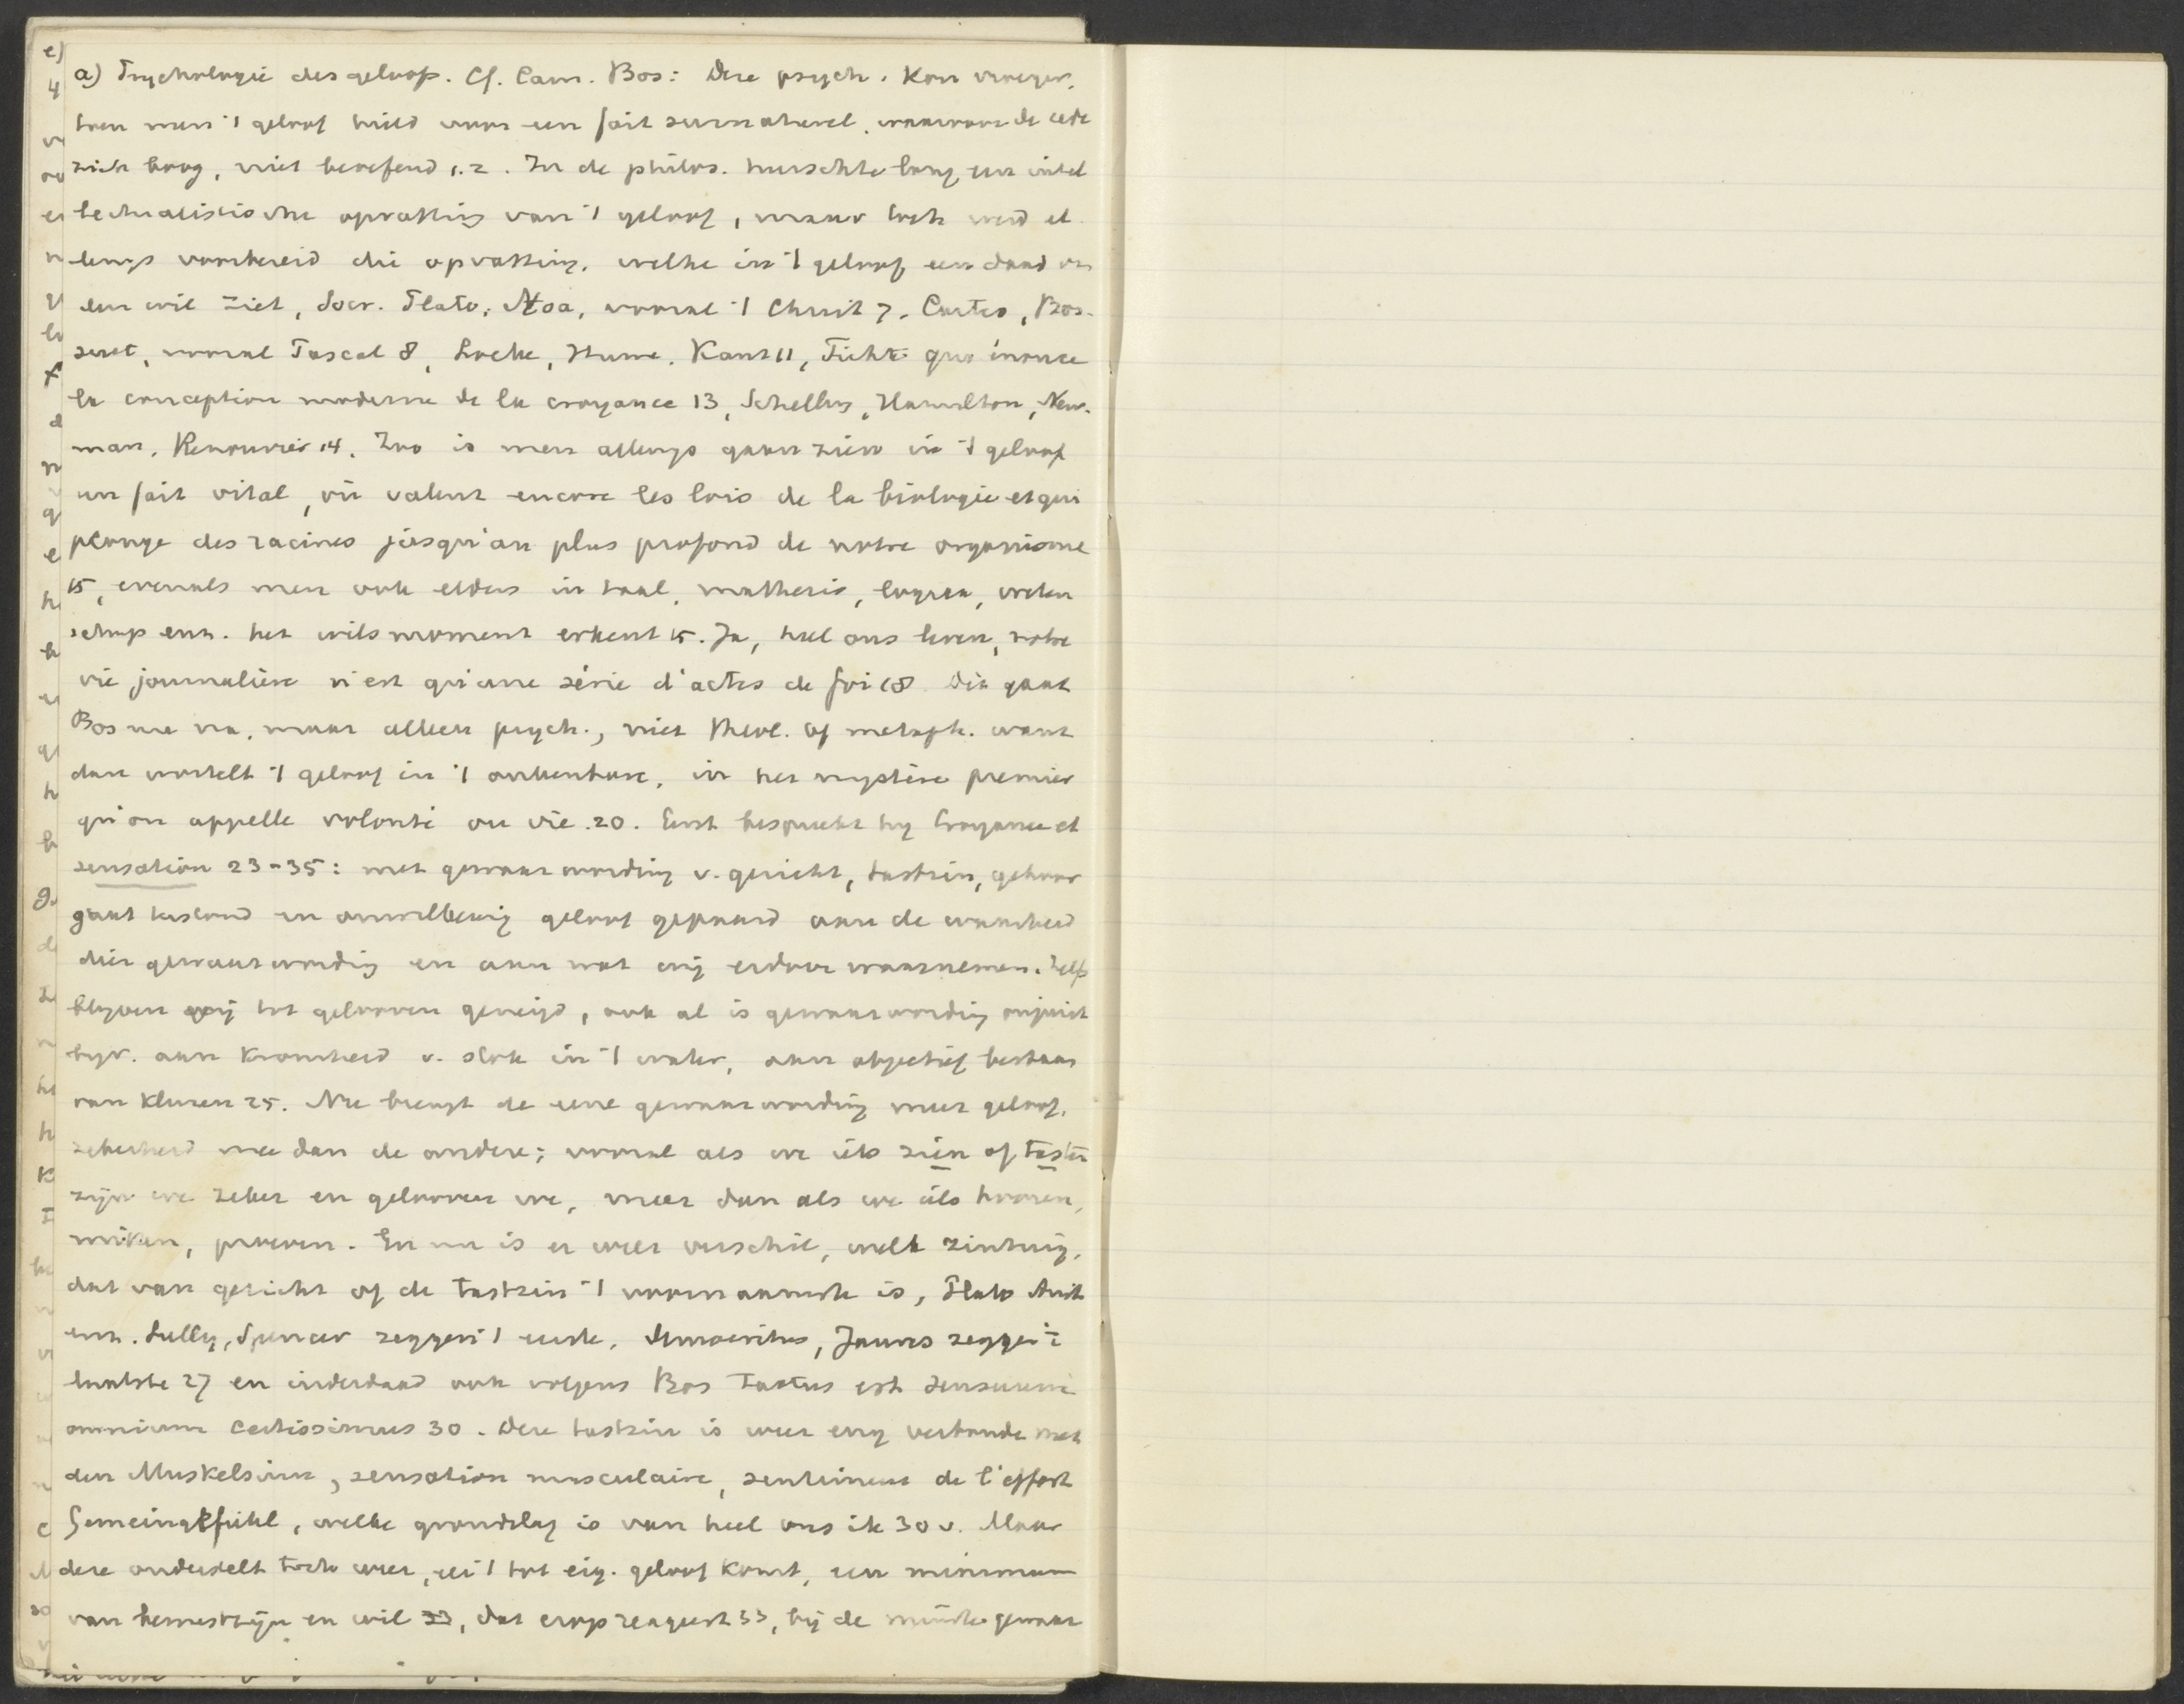 a) Psychologie des geloofs. Cf. Cam. Bos: Deze psych. kon vroeger,
toen men 't geloof hield voor een fait surnaturel, waarvoor de rede
zich boog, niet beoefend 1.2. In de philos. heerschte lang een intel
lectualistische opvatting van 't geloof, maar toch werd al
lengs voorbereid die opvatting, welke in 't geloof een daad v.
den wil ziet, Socr. Plato, Stoa, vooral 't Christ 7, Cartes, Bos-
suet, vooral Pascal 8, Locke, Hume, Kant 11, Fichte qui énonce
la conception moderne de la croyance 13, Schelling, Hamilton, New-
man, Renouvier 14. Zoo is men allengs gaan zien in 't geloof
un fait vital, où valent encore les lois de la biologie et qui
plonge des racines jusqu'au plus profond de notre organisme
15, evenals men ook elders in taal, mathesis, logica, weten
schap enz. het wilsmoment erkent 15. Ja, heel ons leven, notre
vie journalière n'est qu'une série d'actes de foi 18. Dit gaat
Bos me na, maar alleen psych., niet theol. of metaph. want
dan wortelt 't geloof in 't onkenbare, in het mystère premier
qu'on appelle volonté ou vie. 20. Eerst bespreekt hij Croyance et
sensation 23-35: met gewaarwording v. gezicht, tastzin, gehoor
gaat beslond en onwillekeurig geloof gepaard aan de waarheid
dier gewaarwording en aan wat wij erdoor waarnemen. Zelfs
blijven wij tot gelooven geneigd, ook al is gewaarwording onjuist
bijv. aan kromheid v. stok in 't water, aan objectief bestaan
van kleuren 25. Nu brengt de eene gewaarwording meer geloof,
zekerheid mee dan de andere; vooral als we iets zien of tasten
zijn we zeker en gelooven we, meer dan als we iets hooren,
ruiken, proeven. En nu is er weer verschil, welk zintuig,
dat van gezicht of de tastzin 't voornaamste is, Plato Arist
enz. Sully, Spencer zeggen 't eerste, Democritus, James zeggen 't
laatste 27 en inderdaad ook volgens Bos tactus est sensuum
omnium certissimus 30. Deze tastzin is weer eng verbonden met
den Muskelsinn, sensation musculaire, sentiment de l'effort
Gemeingefühl, welke grondslag is van heel ons ik 30 v. Maar
deze onderstelt toch weer, zal 't tot eig. geloof komt, een minimum
van bewustzijn en wil 33, dat erop reageert 33, bij de minste gewaar